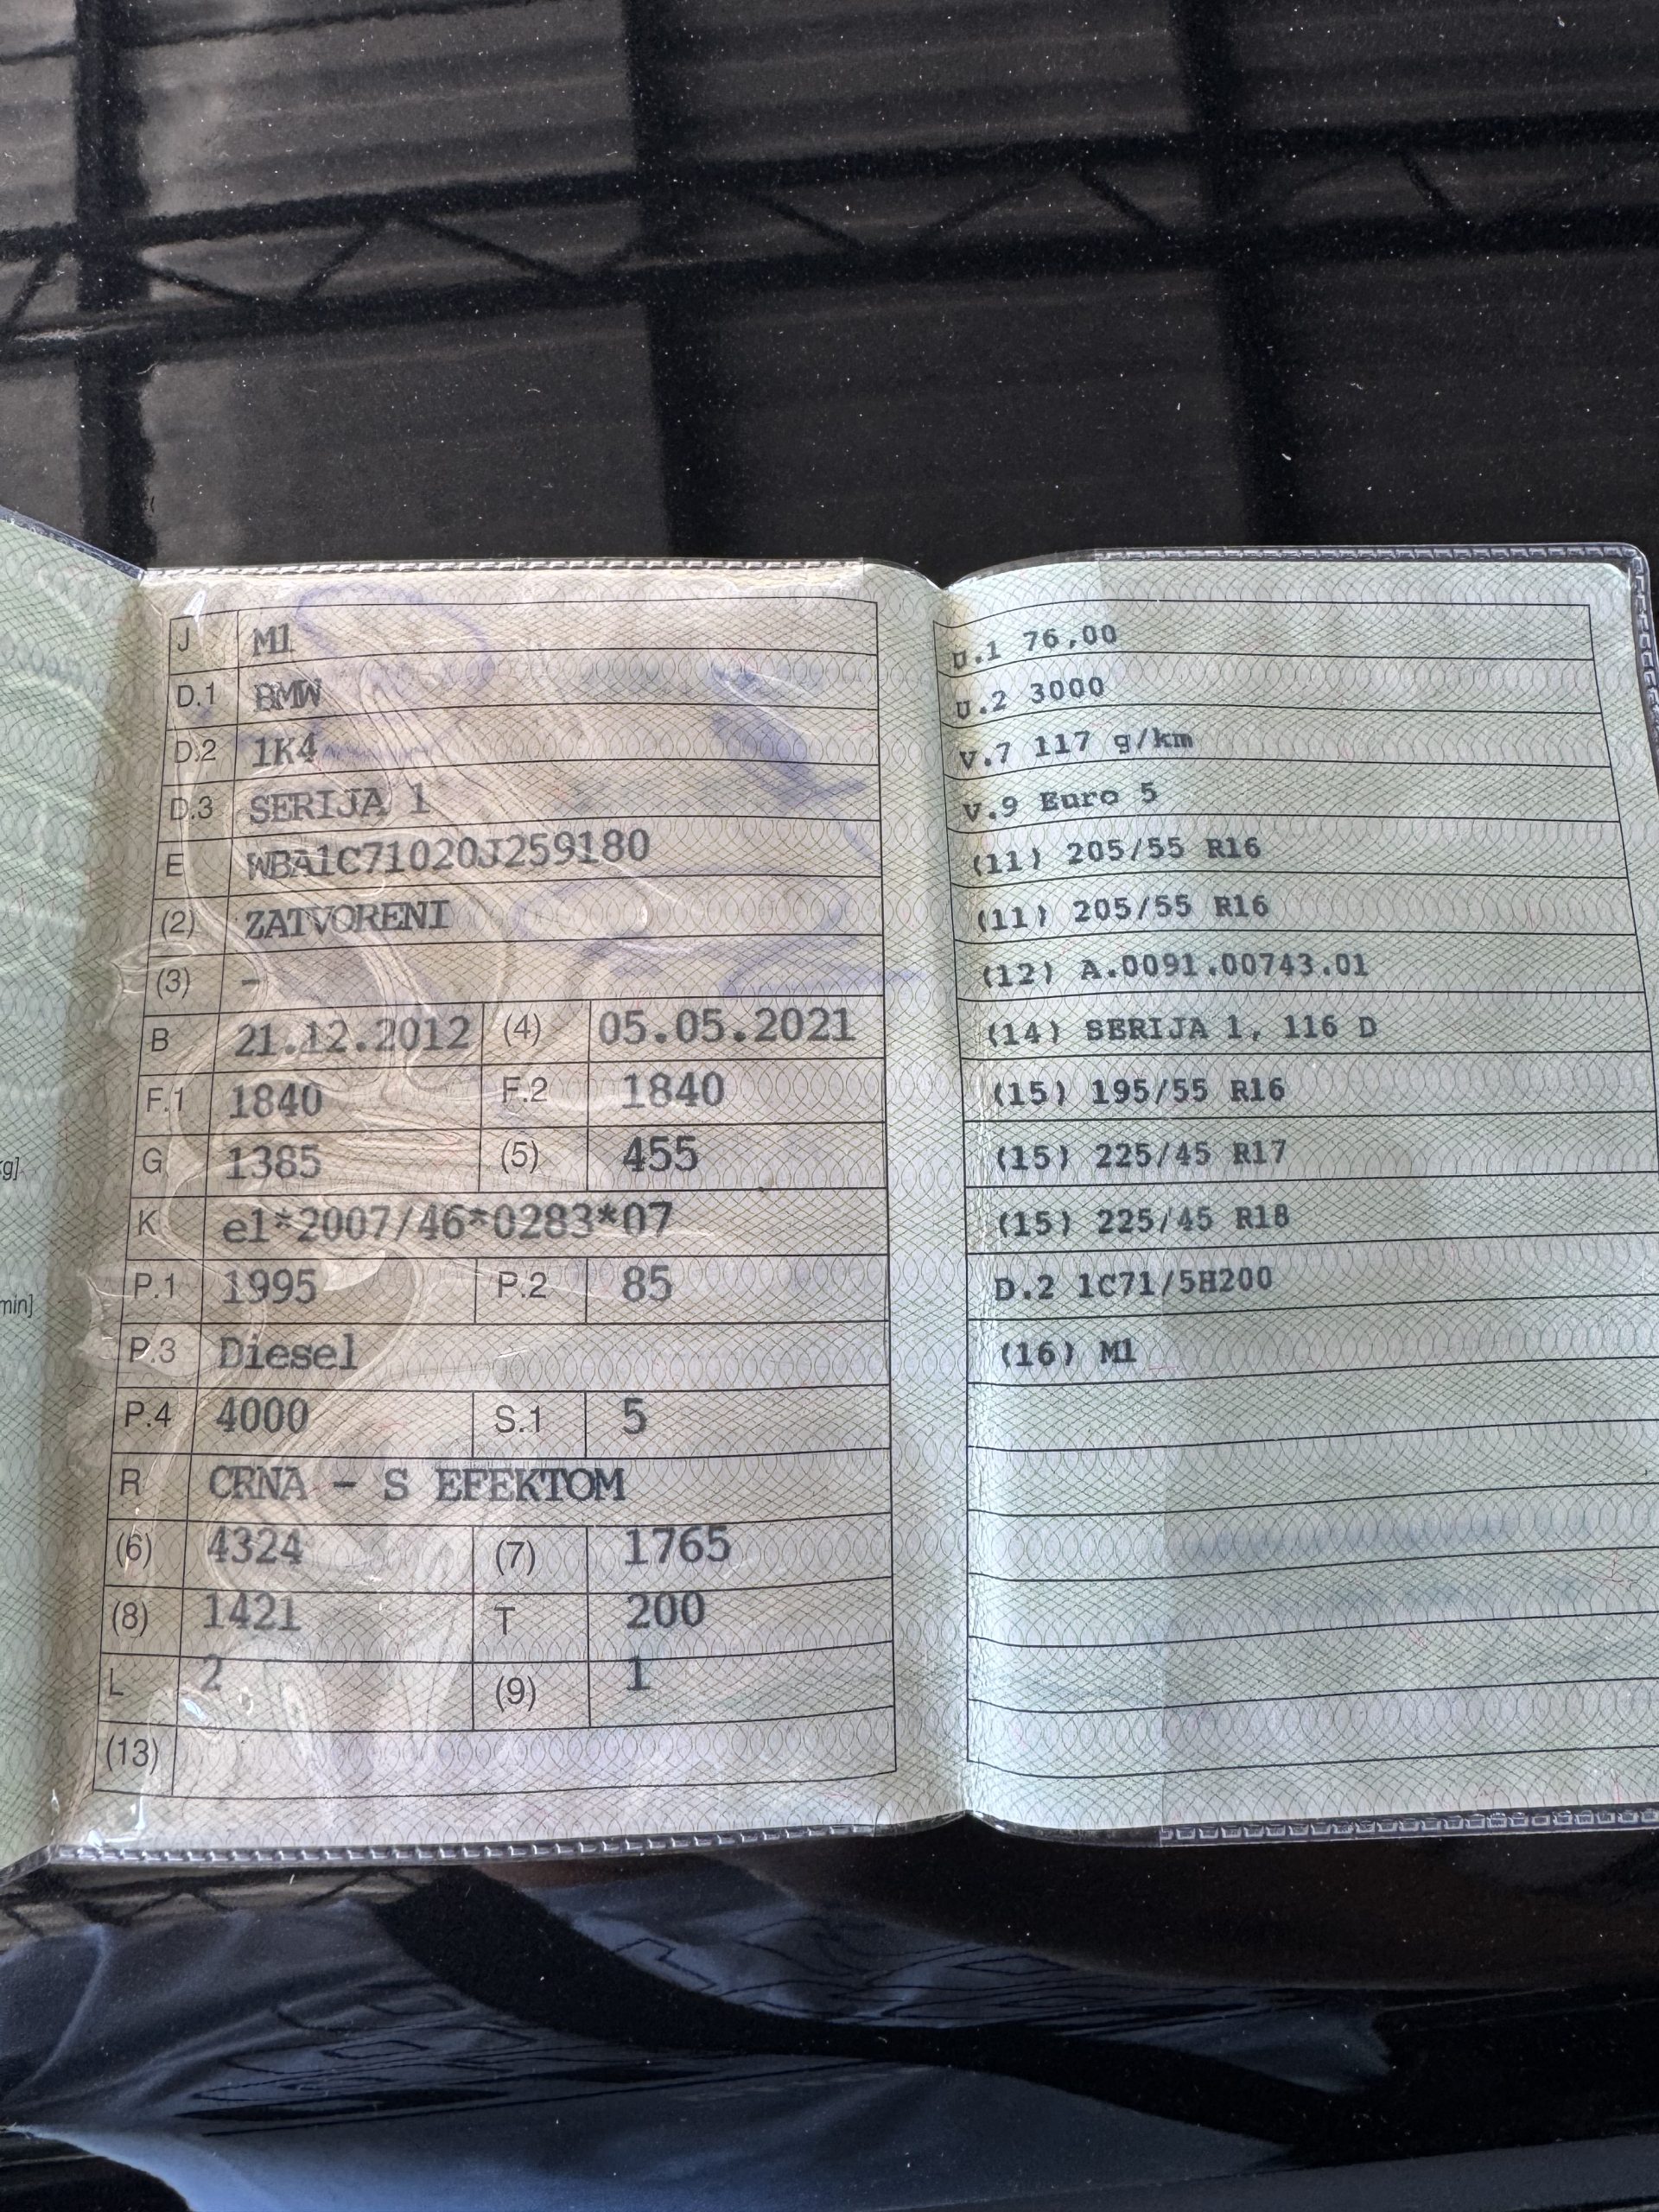 kg]
min]
J M1
D.1 BMW
D.2 1K4
D.3 SERIJA 1
E WBA1C71020J259180
(2) ZATVORENI
(3) -
B 21.12.2012 (4) 05.05.2021
F.1 1840 F.2 1840
G 1385 (5) 455
K e1*2007/46*0283*07
P.1 1995 P.2 85
P.3 Diesel
P.4 4000 S.1 5
R CRNA - S EFEKTOM
(6) 4324 (7) 1765
(8) 1421 T 200
L 2 (9) 1
(13)
U.1 76,00
U.2 3000
V.7 117 g/km
V.9 Euro 5
(11) 205/55 R16
(11) 205/55 R16
(12) A.0091.00743.01
(14) SERIJA 1, 116 D
(15) 195/55 R16
(15) 225/45 R17
(15) 225/45 R18
D.2 1C71/5H200
(16) M1